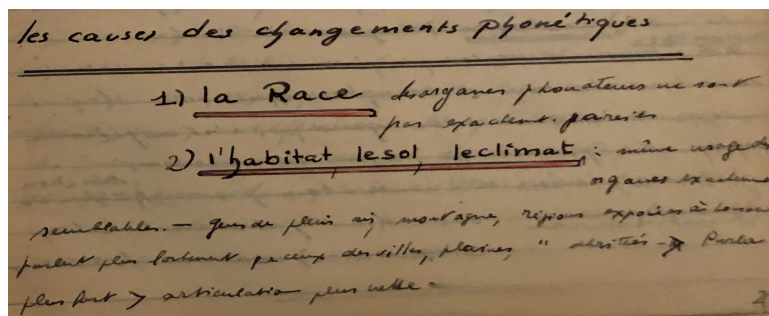 les causes des changements phonétiques
1) la Race les organes phonateurs ne sont
pas exactement. pareils
2) l'habitat, le sol, le climat, : même usage des
organes exactement
semblables. — gens de plein air, montagne, régions exposées à
parlent plus fortement que ceux des villes, plaines, " abritées → Parler
plus fort > articulation plus nette.
2